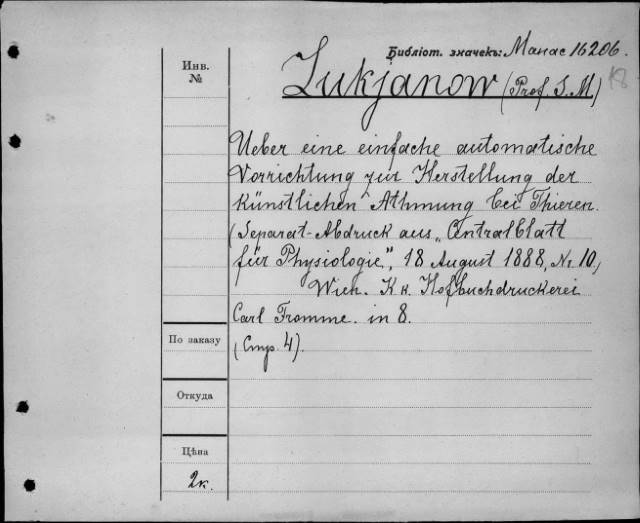 Библіот. значекъ: Манас 16206.
Инв.
№
Lukjanow (Prof. S. M)
Ueber eine einfache automatische
Vorrichtung zur Herstellung der
künstlichen Athmung bei Thieren.
(Separat-Abdruck aus „Centralblatt
für Physiologie", 18 August 1888, Nr 10,
Wien. K. k. Hofbuchdruckerei
Carl Fromme. in 8.
По заказу
(Стр. 4).
Откуда
Цѣна
2к.